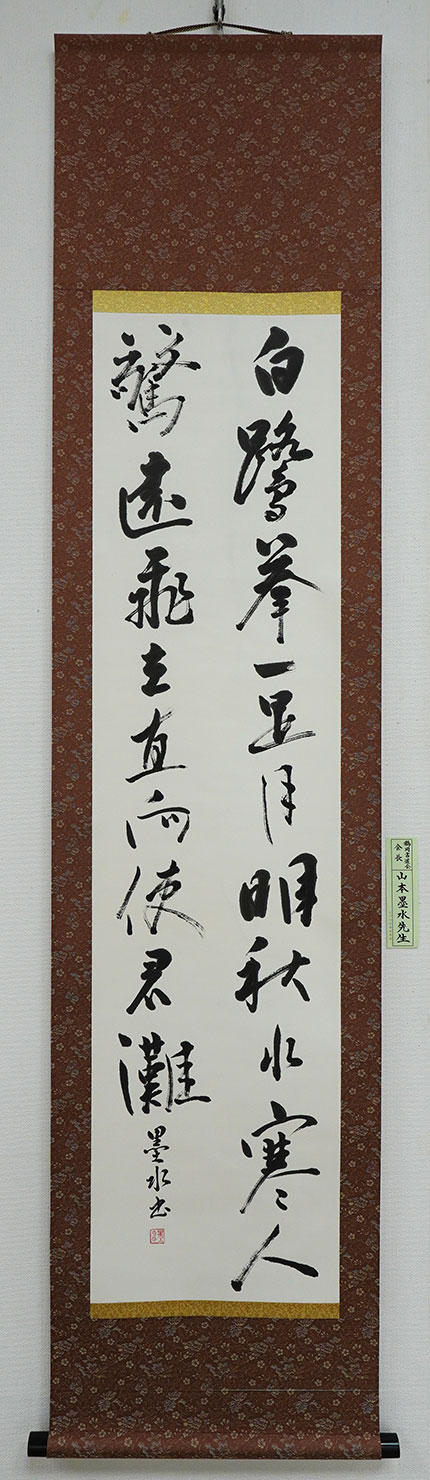 白鷺拳一足月明秋水寒人
驚遠飛去直向使君灘
墨水書
鶴岡書道会
会長
山本墨水先生